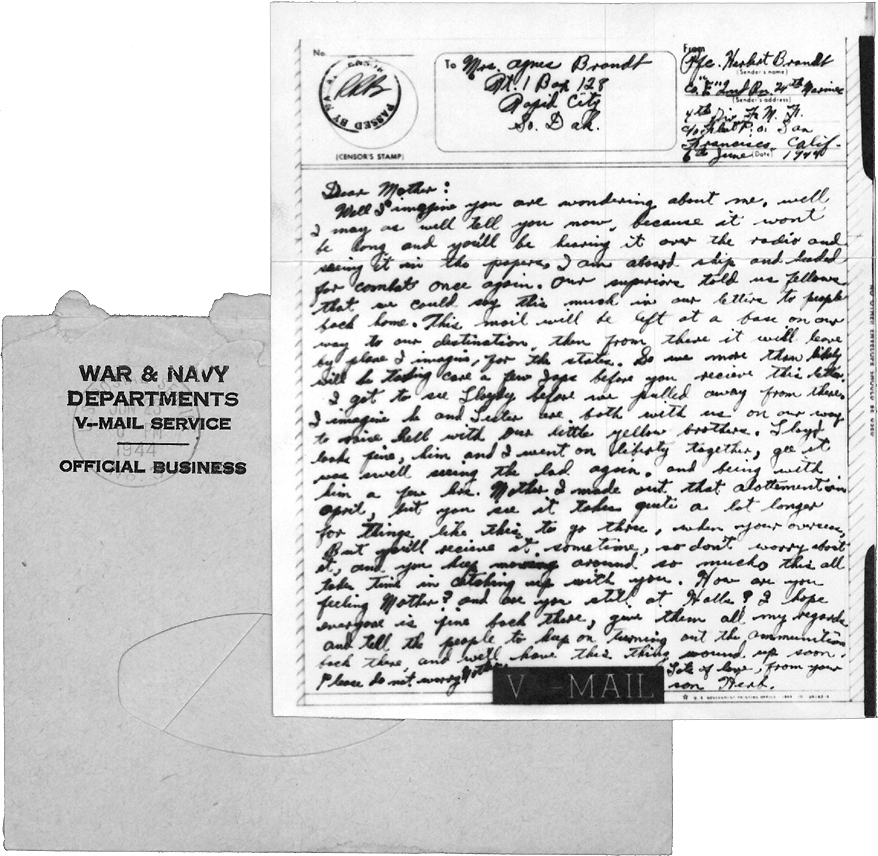 WAR & NAVY
DEPARTMENTS
V--MAIL SERVICE
OFFICIAL BUSINESS
JUN 23
1944
No.
PASSED BY NA
(CENSOR'S STAMP)
To Mrs. Agnes Brandt
Rt. 1 Box 128
Rapid City
So. Dak.
From
Pfc. Herbert Brandt
(Sender's name)
Co. "E" 2nd Bn. 24th Marines
(Sender's address)
4th Div. F. M. F.
c/o Fleet P.O. San
Francisco, Calif.
6th June (Date) 1944
Dear Mother:
Well I imagine you are wondering about me, well
I may as well tell you now, because it wont
be long and you'll be hearing it over the radio and
seeing it in the papers, I am aboard ship and headed
for combat once again. Our superiors told us fellows
that we could say this much in our letters to people
back home. This mail will be left at a base on our
way to our destination, then from there it will leave
by plane I imagine, for the states. So we more than likely
will be taking care a few Japs before you recieve this letter.
I got to see Lloyd before we pulled away from there,
I imagine he and Lester are both with us on our way
to raise hell with our little yellow brothers. Lloyd
looks fine, him and I went on liberty together, gee it
was swell seeing the lad again, and being with
him a few hrs. Mother I made out that alottement in
april, but you see it takes quite a lot longer
for things like this to go thru, when your overseas,
But you'll recieve it sometime, so don't worry about
it, and you keep moving around so much this all
takes time in catching up with you. How are you
feeling Mother? and are you still at Halls? I hope
everyone is fine back there, give them all my regards
and tell the people to keep on turning out the ammunition
back there, and we'll have this thing wound up soon.
Please do not worry Mother Lots of love, from your
son Herb.
V--MAIL
U. S. GOVERNMENT PRINTING OFFICE